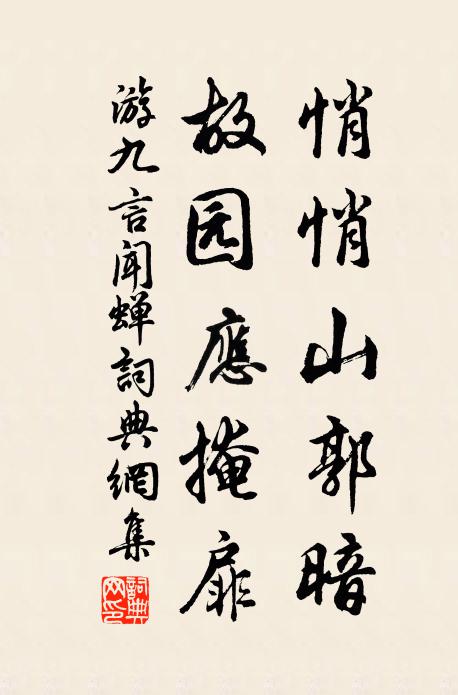 悄悄山郭暗
故园應掩扉
游九言闻蝉詞典網集
詞典網印